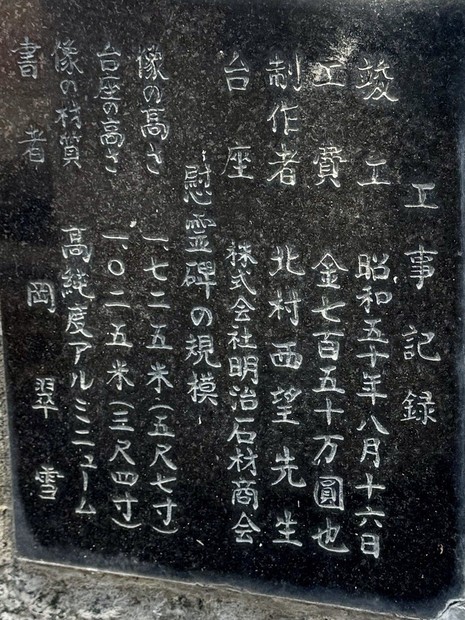 工事記録
竣工 昭和五十年八月十六日
工費 金七百五十万圓也
制作者 北村西望先生
台座 株式会社明治石材商会
-慰霊碑の規模-
像の高さ 一、七二五米(五尺七寸)
台座の高さ 一、〇二五米(三尺四寸)
像の材質 高純度アルミニューム
書者 岡翠雪